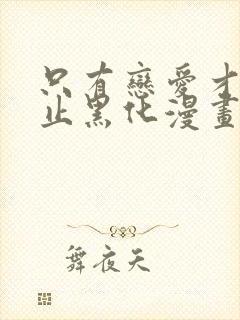 只有戀愛才
止黑化漫畫
舞夜天